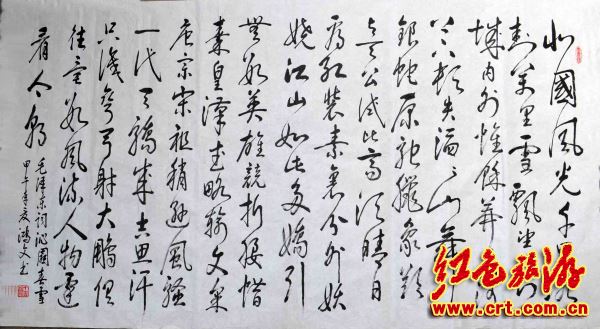 北國風光千里冰
封萬里雪飄望長
城内外惟餘莽
上下頓失滔滔山舞
銀蛇原馳蠟象欲
與天公試比高須晴日
看紅裝素裹分外妖
嬈江山如此多嬌引
無數英雄競折腰惜
秦皇漢武略輸文采
唐宗宋祖稍遜風騷
一代天驕成吉思汗
只識彎弓射大鵰俱
往矣數風流人物還
看今朝
毛澤東詞沁園春雪
甲午年夏鴻文書
红色旅游
www.crt.com.cn